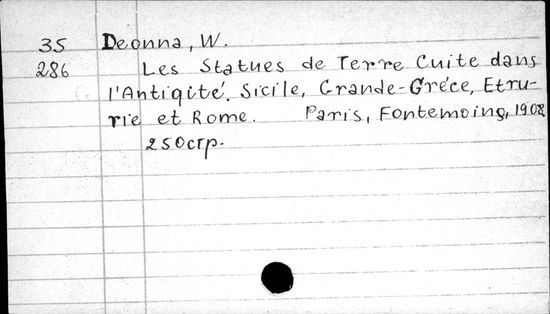 35 Deonna, W.
286 Les Statues de Terre Cuite dans
l'Antiqité. Sicile, Grande-Gréce, Etru-
rie et Rome. Paris, Fontemoing, 1908
250стр.